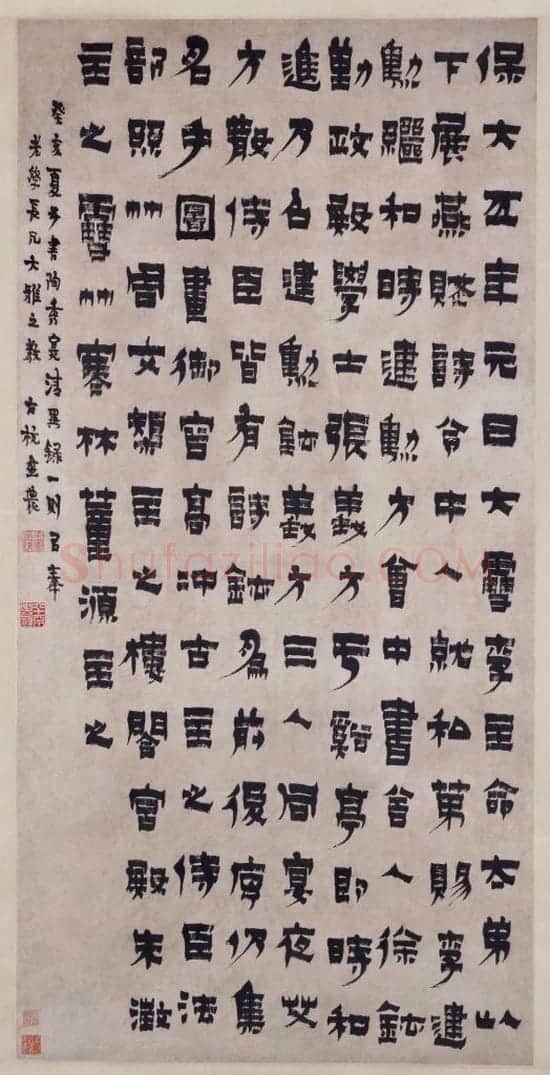 保大五年元日大雪李主命太弟以
下展燕賦詩令中人就和第賜李建
勳繼和時建勳方會中書舍人徐鉉
勤政殿學士張義方于谿亭即時和
進乃召建勳鉉義方三人同宴夜艾
方散侍臣皆有詩鉉為前後序仍集
名手圖畫御容高沖古主之侍臣法
部竹周文榘主之樓閣宮殿朱澂
主之雪竹寒林董源主之
癸亥夏書陶秀實清異錄一則呂奉
老學長兄大雅之教 古杭金農
Shufaziliao.COM